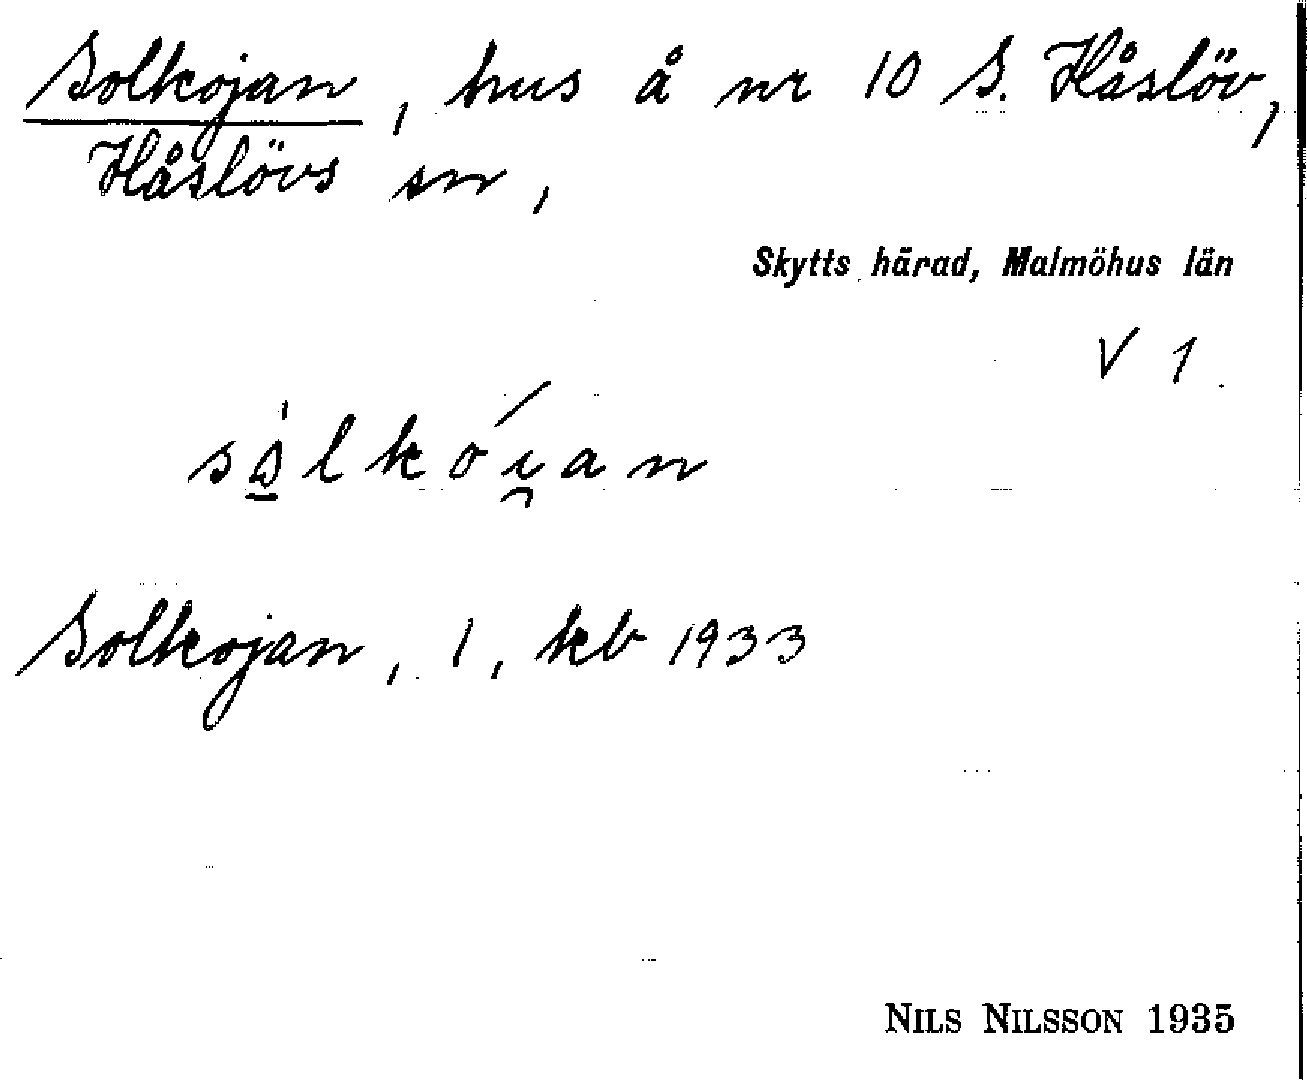 Solkojan, hus å nr 10 S. Håslöv,
Håslövs sn,
Skytts härad, Malmöhus län
V 1.
Solkojan, 1, kb 1933
NILS NILSSON 1935